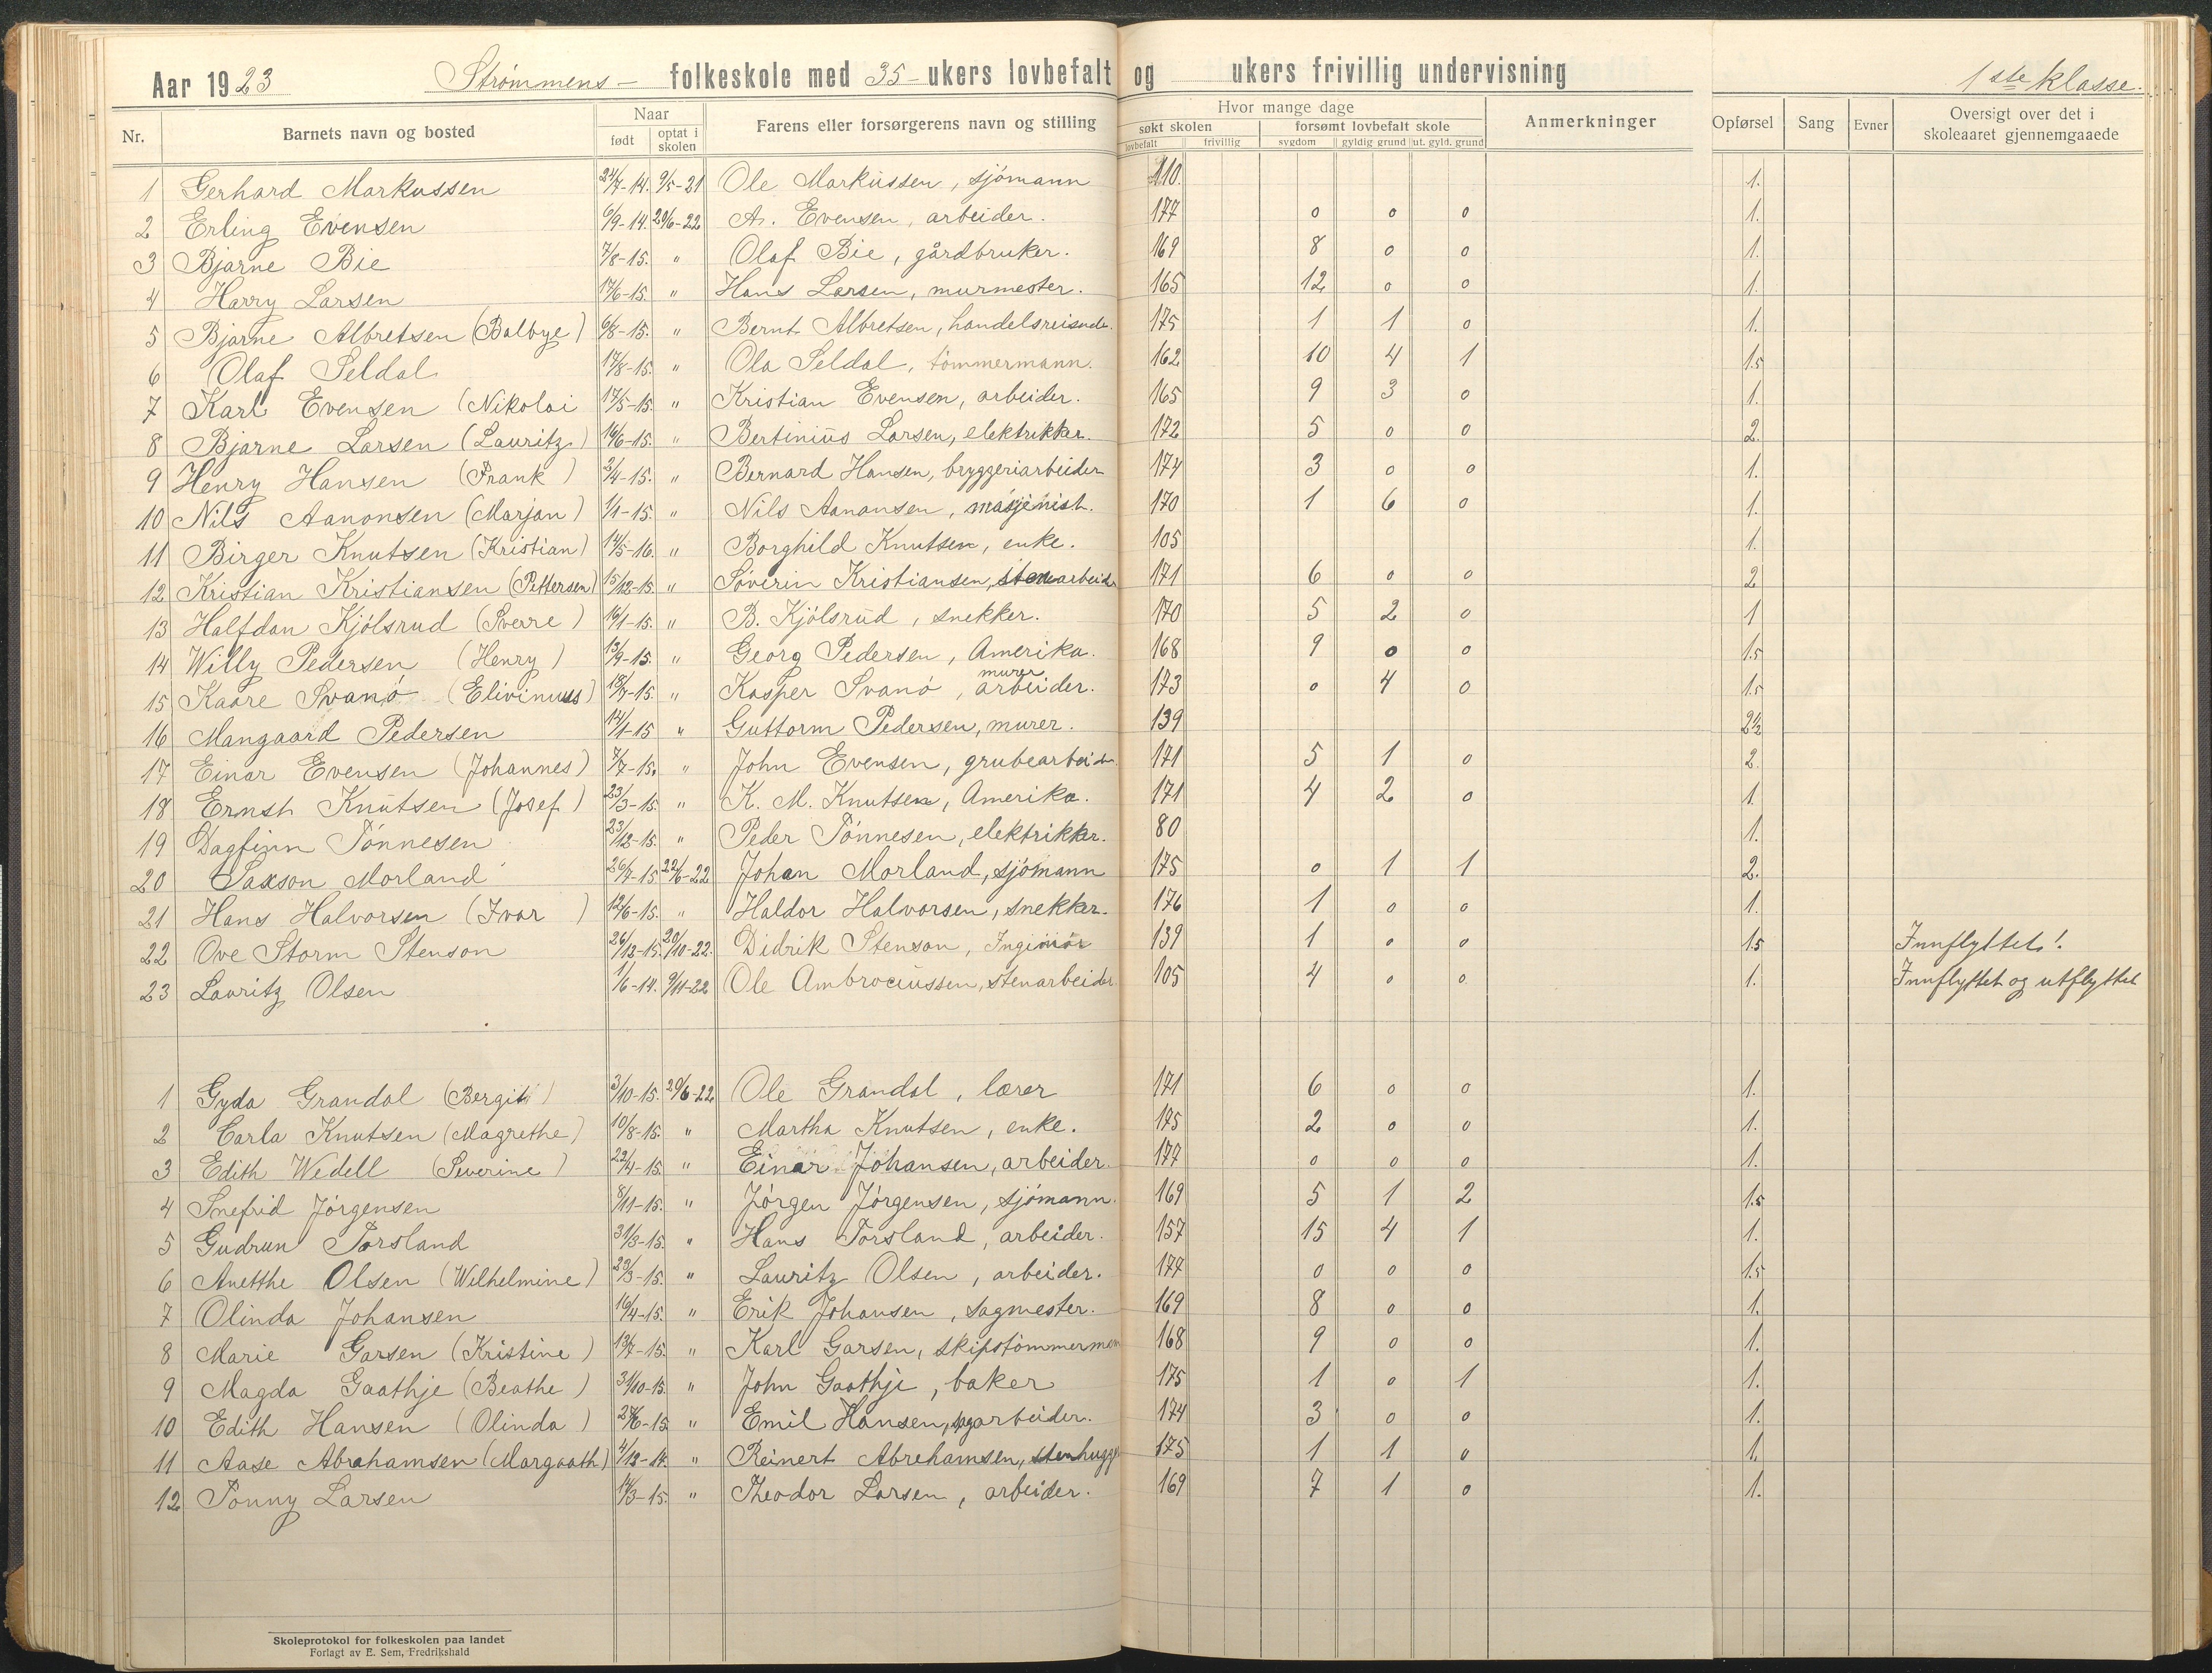 Aar 1923 Strømmens – folkeskole med 35 – ukers lovbefalt og ukers frivillig undervisning 1ste klasse.
Nr. Barnets navn og bosted Naar født optat i skolen Farens eller forsørgerens navn og stilling Hvor mange dage søkt skolen lovbefalt frivillig forsømt lovbefalt skole sygdom gyldig grund ut. gyld. grund Anmerkninger Opførsel Sang Evner Oversigt over det i skoleaaret gjennemgaaede
1 Gerhard Markussen 24/7-14. 9/5-21 Ole Markussen, sjømann 110. 1.
2 Erling Evensen 6/9-14. 20/6-22 A. Evensen, arbeider. 177 0 0 0 1.
3 Bjarne Bie 7/8-15. " Olaf Bie, gårdbruker. 169 8 0 0 1.
4 Harry Larsen 17/6-15. " Hans Larsen, murmester. 165 12 0 0 1.
5 Bjarne Albretsen (Balbye) 6/8-15. " Bernt Albretsen, handelsreisende. 175 1 1 0 1.
6 Olaf Seldal 17/8-15. " Ola Seldal, tømmermann. 162 10 4 1 1.5
7 Karl Evensen (Nikolai 17/5-15. " Kristian Evensen, arbeider. 165 9 3 0 1.
8 Bjarne Larsen (Lauritz) 16/6-15. " Bertinius Larsen, elektrikker. 172 5 0 0 2.
9 Henry Hansen (Frank) 2/4-15. " Bernard Hansen, bryggeriarbeider 174 3 0 0 1.
10 Nils Aanonsen (Marjan) 1/1-15. " Nils Aanonsen, masjenist. 170 1 6 0 1.
11 Birger Knutsen (Kristian) 14/5-16. " Borghild Knutsen, enke. 105 1.
12 Kristian Kristiansen (Pettersen) 15/12-15. " Søverin Kristiansen, stenarbeider 171 6 0 0 2
13 Halfdan Kjølsrud (Sverre) 16/1-15. " B. Kjølsrud, snekker. 170 5 2 0 1
14 Willy Pedersen (Henry) 13/9-15. " Georg Pedersen, Amerika. 168 9 0 0 1.5
15 Kaare Svanø (Elivinuss) 18/7-15. " Kasper Svanø, murer arbeider. 173 0 4 0 1.5
16 Mangaard Pedersen 14/1-15 " Guttorm Pedersen, murer. 139 2½
17 Einar Evensen (Johannes) 7/7-15. " John Evensen, grubearbeider 171 5 1 0 2.
18 Ernst Knutsen (Josef) 23/3-15. " K. M. Knutsen, Amerika. 171 4 2 0 1.
19 Dagfinn Tønnesen 23/12-15. " Peder Tønnesen, elektrikker. 80 1.
20 Saxson Morland 26/7-15 22/6-22 Johan Morland, sjømann 175 0 1 1 2.
21 Hans Halvorsen (Ivar) 12/6-15. " Haldor Halvorsen, snekker. 176 1 0 0 1.
22 Ove Storm Stenson 26/12-15. 20/10-22. Didrik Stenson, Ingeniør 139 1 0 0 1.5 Innflyttet!
23 Lauritz Olsen 1/6-14. 9/11-22 Ole Ambrociussen, stenarbeider 105 4 0 0 1. Innflyttet og utflyttet
1 Gyda Grandal (Bergit) 3/10-15. 20/6-22 Ole Grandal, lærer 171 6 0 0 1.
2 Carla Knutsen (Magrethe) 10/8-15. " Martha Knutsen, enke. 175 2 0 0 1.
3 Edith Wedell (Severine) 22/4-15. " Einar Johansen, arbeider. 177 0 0 0 1.
4 Snefrid Jørgensen 8/11-15. " Jørgen Jørgensen, sjømann. 169 5 1 2 1.5
5 Gudrun Torsland 31/3-15. " Hans Torsland, arbeider. 157 15 4 1 1.
6 Anetthe Olsen (Wilhelmine) 29/3-15. " Lauritz Olsen, arbeider. 177 0 0 0 1.5
7 Olinda Johansen 16/4-15. " Erik Johansen, sagmester. 169 8 0 0 1.
8 Marie Garsen (Kristine) 13/7-15. " Karl Garsen, skipstømmermann 168 9 0 0 1.
9 Magda Gaathje (Beathe) 31/10-15. " John Gaathje, baker 175 1 0 1 1.
10 Edith Hansen (Olinda) 27/6-15 " Emil Hansen, sagarbeider. 174 3 0 0 1.
11 Aase Abrahamsen (Margaath) 4/12-14. " Reinert Abrehamsen, stenhugger 175 1 1 0 1.
12 Tonny Larsen 14/3-15. " Theodor Larsen, arbeider. 169 7 1 0 1.
Skoleprotokol for folkeskolen paa landet
Forlagt av E. Sem, Fredrikshald